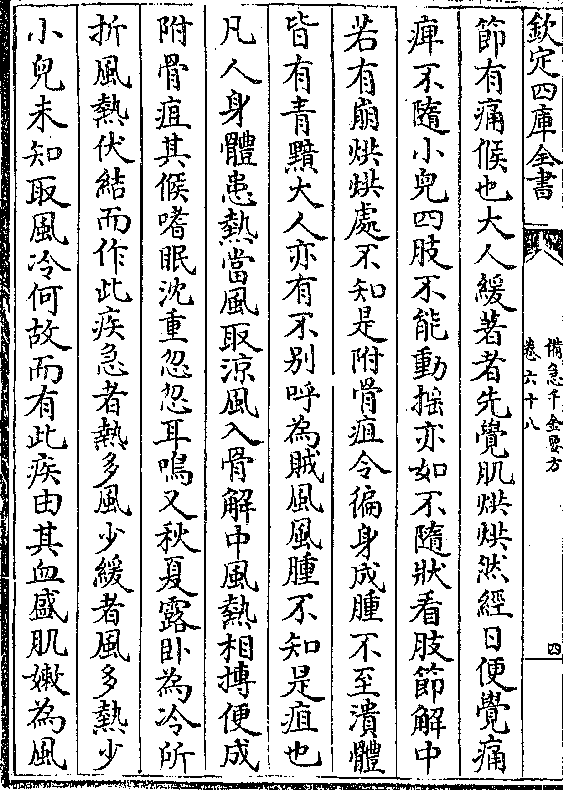 欽定四庫全書
備急千金要方
卷六十八
四
節有痛候也大人緩著者先覺肌烘烘然經日便覺痛
痺不隨小兒四肢不能動搖亦如不隨狀看肢節解中
若有崩烘烘處不知是附骨疽令徧身成腫不至潰體
皆有青黯大人亦有不别呼為賊風風腫不知是疽也
凡人身體患熱當風取涼風入骨解中風熱相搏便成
附骨疽其候嗜眠沈重忽忽耳鳴又秋夏露卧為冷所
折風熱伏結而作此疾急者熱多風少緩者風多熱少
小兒未知取風冷何故而有此疾由其血盛肌嫩為風